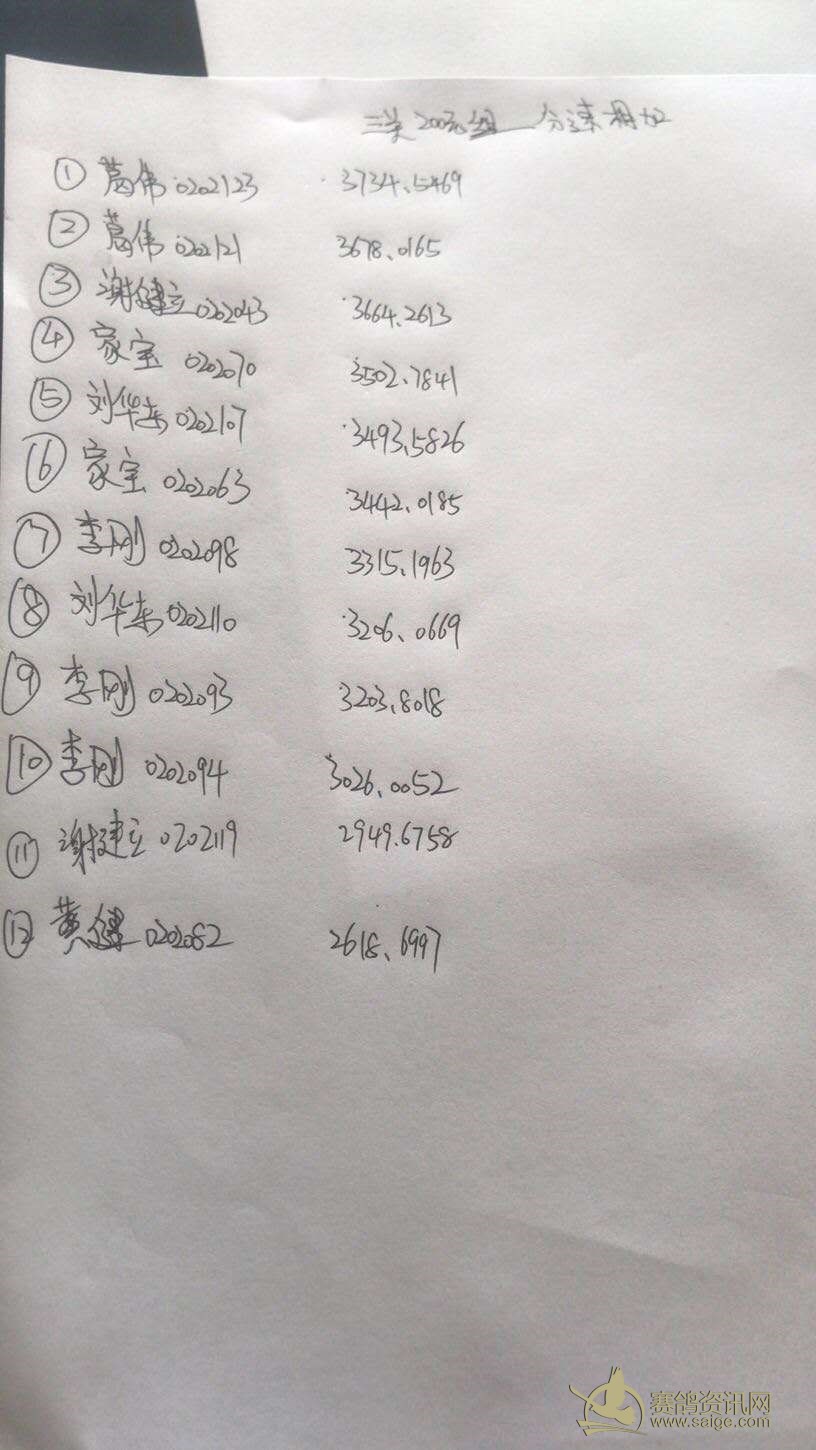 三关200元组 分速相加
① 葛伟 0202123 3734.5469
② 葛伟 0202121 3678.0165
③ 谢建立 0202043 3664.2613
④ 家宝 0202070 3502.7841
⑤ 刘华东 0202107 3493.5826
⑥ 家宝 0202063 3442.0185
⑦ 李刚 0202098 3315.1963
⑧ 刘华东 0202110 3206.0669
⑨ 李刚 0202093 3203.8018
⑩ 李刚 0202094 3026.0052
⑪ 谢建立 0202119 2949.6758
⑫ 黄健 0202082 2618.6997
赛鸽资讯网
www.saige.com